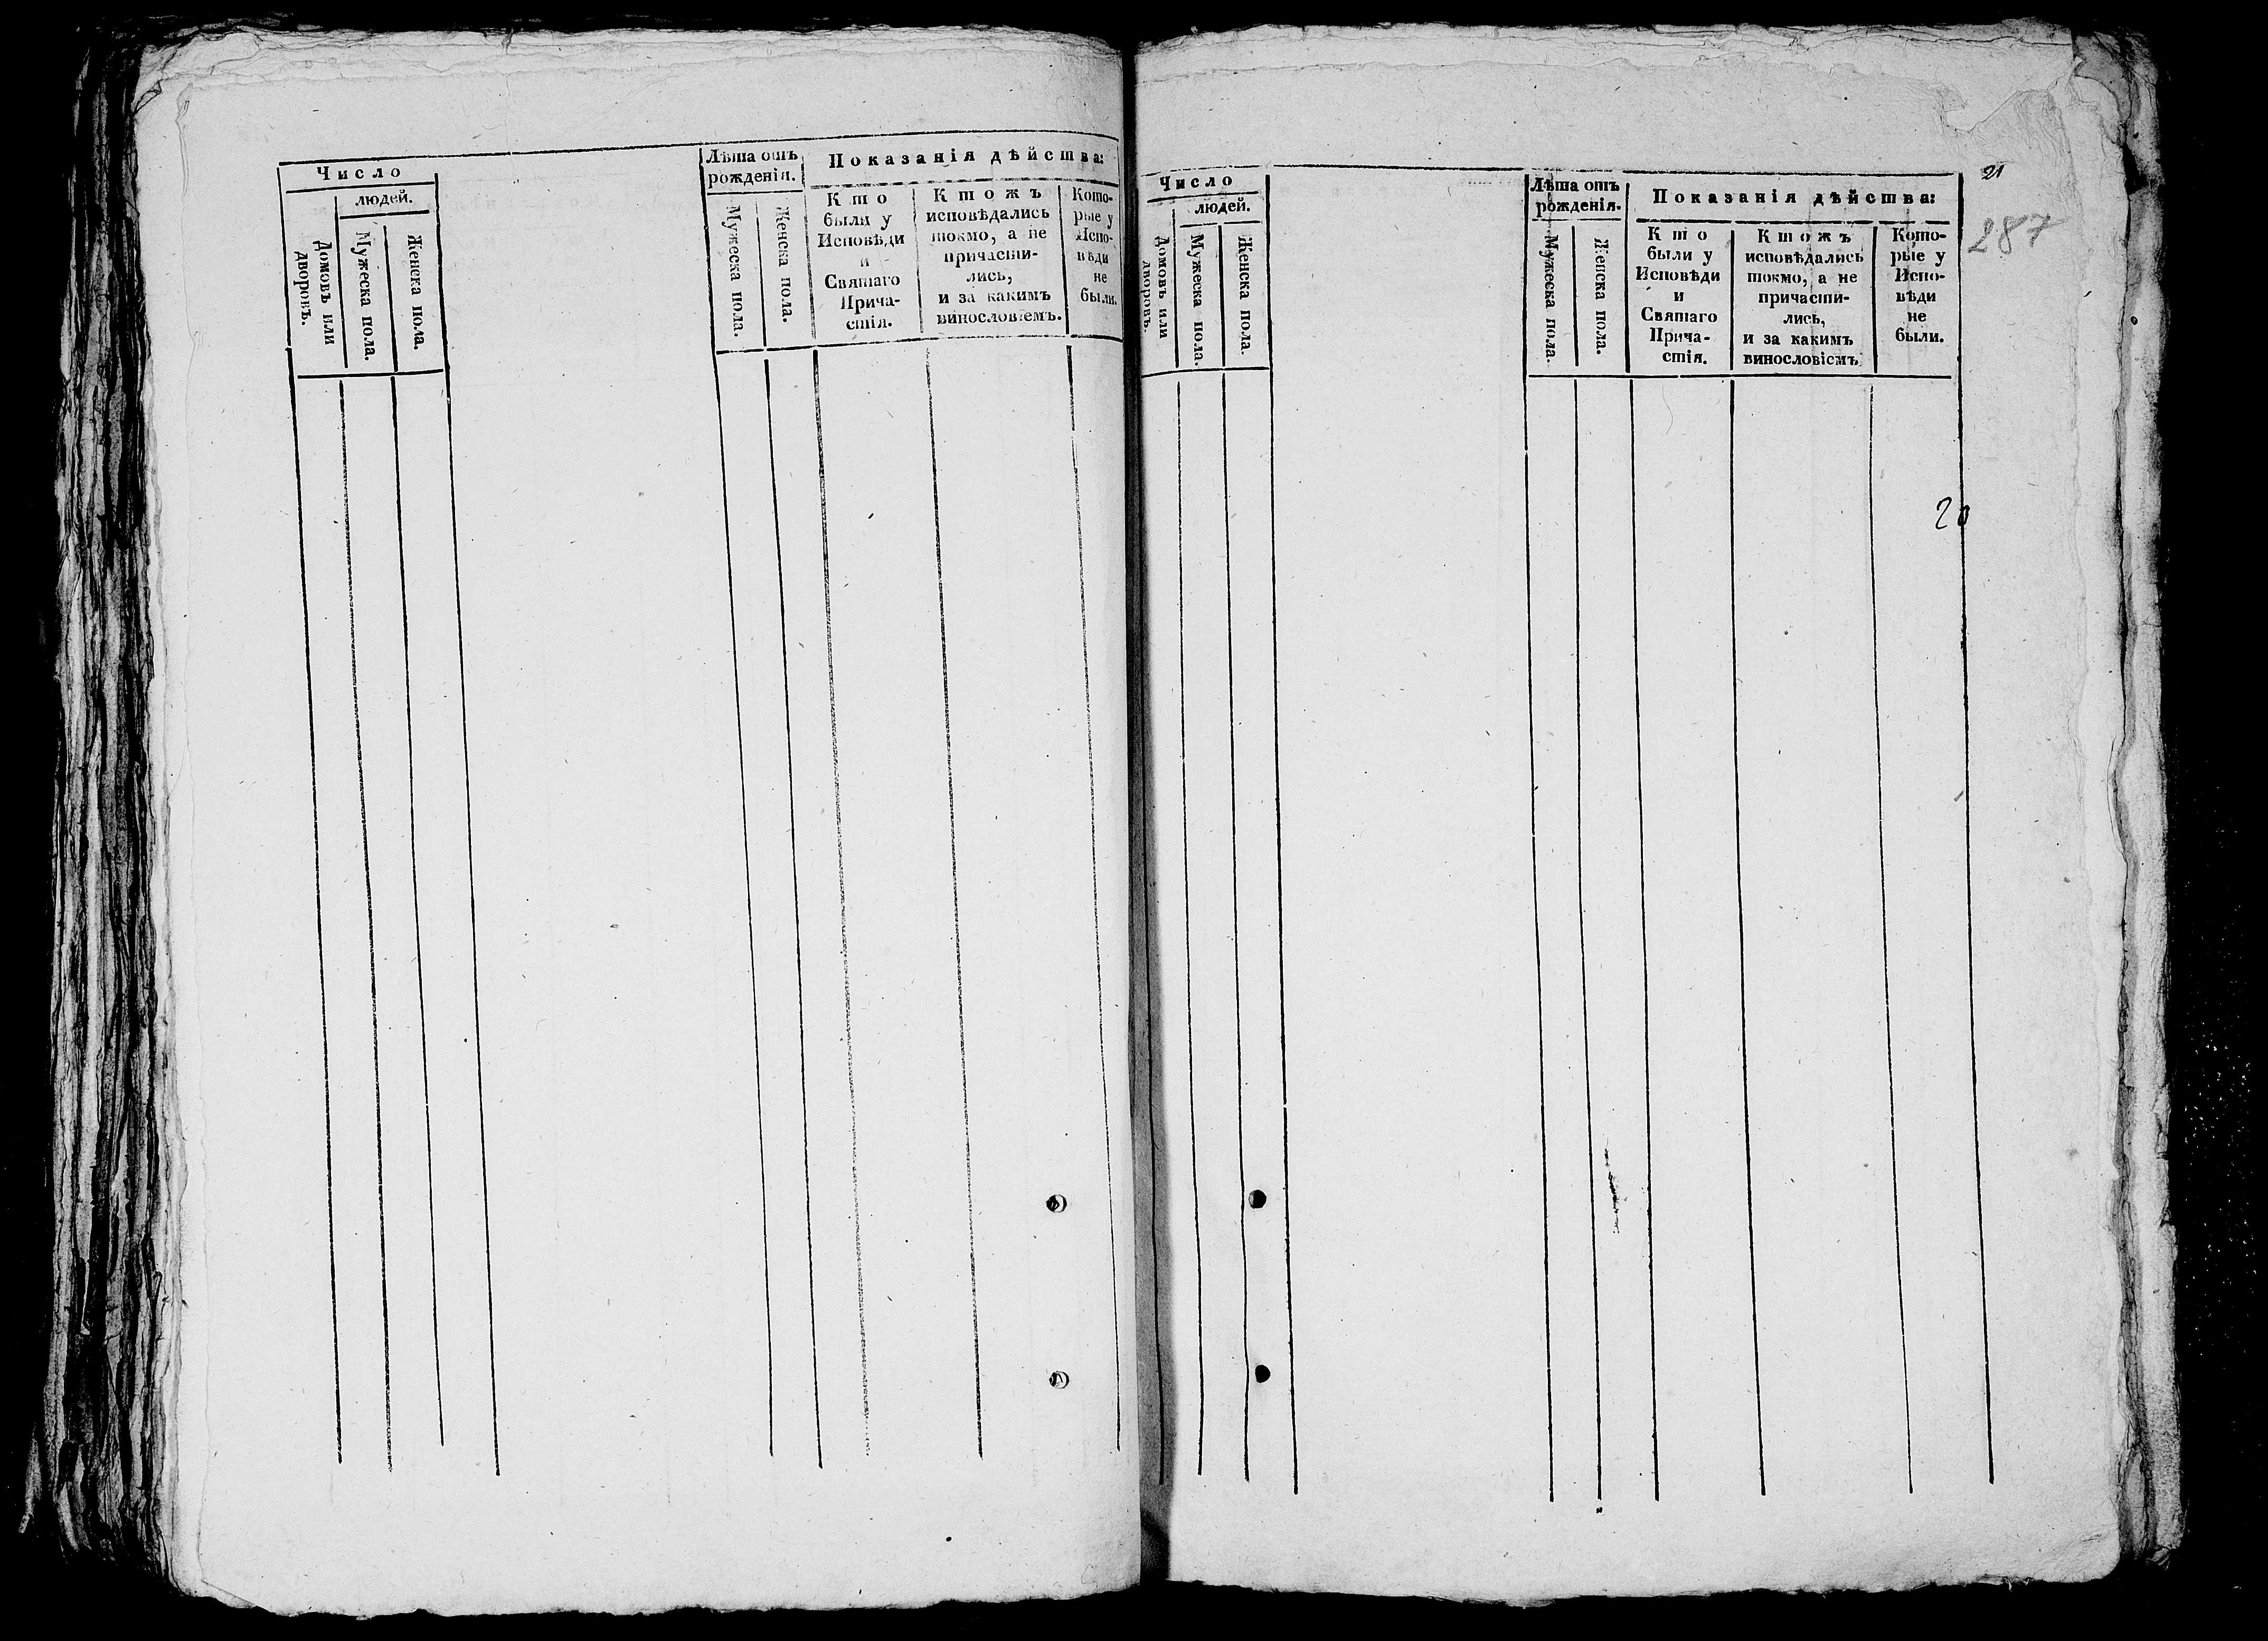 Число
людей.
Домовъ или
дворовъ.
Мужеска пола.
Женска пола.
Лѣта отъ
рожденія.
Мужеска пола.
Женска пола.
Показанія дѣйства:
Кто
были у
Исповѣди
и
Святаго
Прича-
стія.
Ктожъ
исповѣдались
токмо, а не
причасти-
лись,
и за какимъ
винословіемъ.
Кото-
рые у
Испо-
вѣди
не
были.
Число
людей.
Домовъ или
дворовъ.
Мужеска пола.
Женска пола.
Лѣта отъ
рожденія.
Мужеска пола.
Женска пола.
Показанія дѣйства:
Кто
были у
Исповѣди
и
Святаго
Прича-
стія.
Ктожъ
исповѣдались
токмо, а не
причасти-
лись,
и за какимъ
винословіемъ
Кото-
рые у
Испо-
вѣди
не
были.
21
287
20